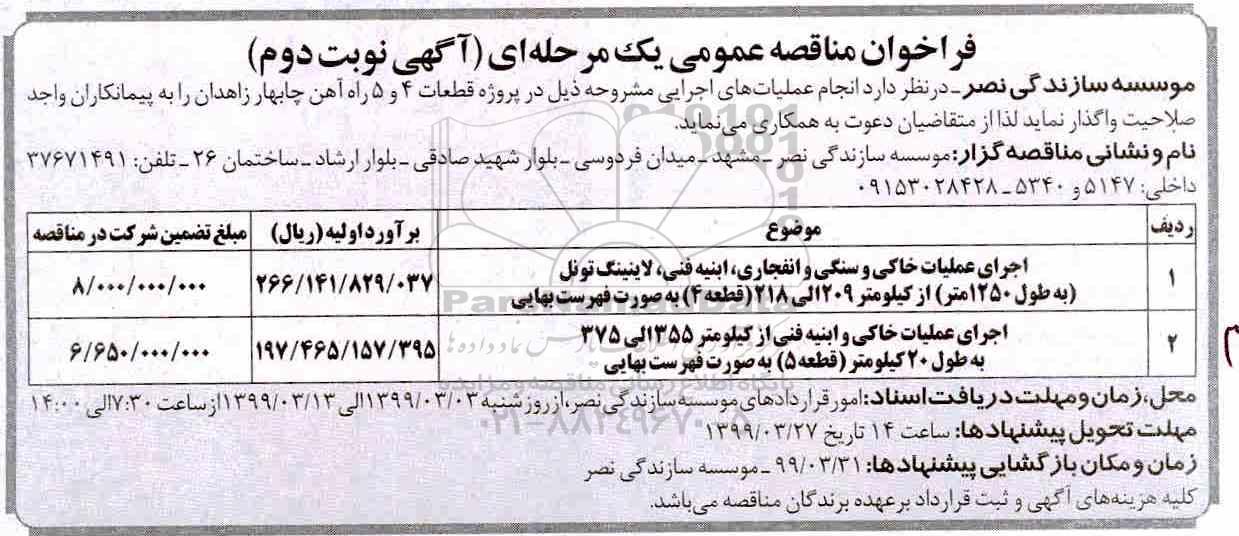 فراخوان مناقصه عمومی یک مرحله‌ای (آگهی نوبت دوم)
موسسه سازندگی نصر ـ درنظر دارد انجام عملیات‌های اجرایی مشروحه ذیل در پروژه قطعات ۴ و ۵ راه آهن چابهار زاهدان را به پیمانکاران واجد
صلاحیت واگذار نماید لذا از متقاضیان دعوت به همکاری می‌نماید.
نام و نشانی مناقصه گزار: موسسه سازندگی نصر ـ مشهد ـ میدان فردوسی ـ بلوار شهید صادقی ـ بلوار ارشاد ـ ساختمان ۲۶ ـ تلفن: ۳۷۶۷۱۴۹۱
داخلی: ۵۱۴۷ و ۵۳۴۰ ـ ۰۹۱۵۳۰۲۸۴۲۸
ردیف موضوع برآورد اولیه (ریال) مبلغ تضمین شرکت در مناقصه
۱ اجرای عملیات خاکی و سنگی و انفجاری، ابنیه فنی، لاینینگ تونل ۲۶۶/۱۴۱/۸۲۹/۰۳۷ ۸/۰۰۰/۰۰۰/۰۰۰
(به طول ۱۲۵۰متر) از کیلومتر ۲۰۹الی ۲۱۸ (قطعه ۴) به صورت فهرست بهایی
ParsNamadData
۲ اجرای عملیات خاکی و ابنیه فنی از کیلومتر ۳۵۵الی ۳۷۵ ۱۹۷/۴۶۵/۱۵۷/۳۹۵ ۶/۶۵۰/۰۰۰/۰۰۰
به طول ۲۰ کیلومتر (قطعه ۵) به صورت فهرست بهایی
پایگاه اطلاع رسانی مناقصه و مزایده
محل، زمان و مهلت دریافت اسناد: امور قراردادهای موسسه سازندگی نصر، از روز شنبه ۱۳۹۹/۰۳/۰۳الی ۱۳۹۹/۰۳/۱۳از ساعت ۷:۳۰الی ۱۴:۰۰
۰۲۱-۸۸۳۴۹۶۷۰-۵
مهلت تحویل پیشنهادها: ساعت ۱۴ تاریخ ۱۳۹۹/۰۳/۲۷
زمان و مکان بازگشایی پیشنهادها: ۹۹/۰۳/۳۱ ـ موسسه سازندگی نصر
کلیه هزینه‌های آگهی و ثبت قرارداد بر عهده برندگان مناقصه می‌باشد.